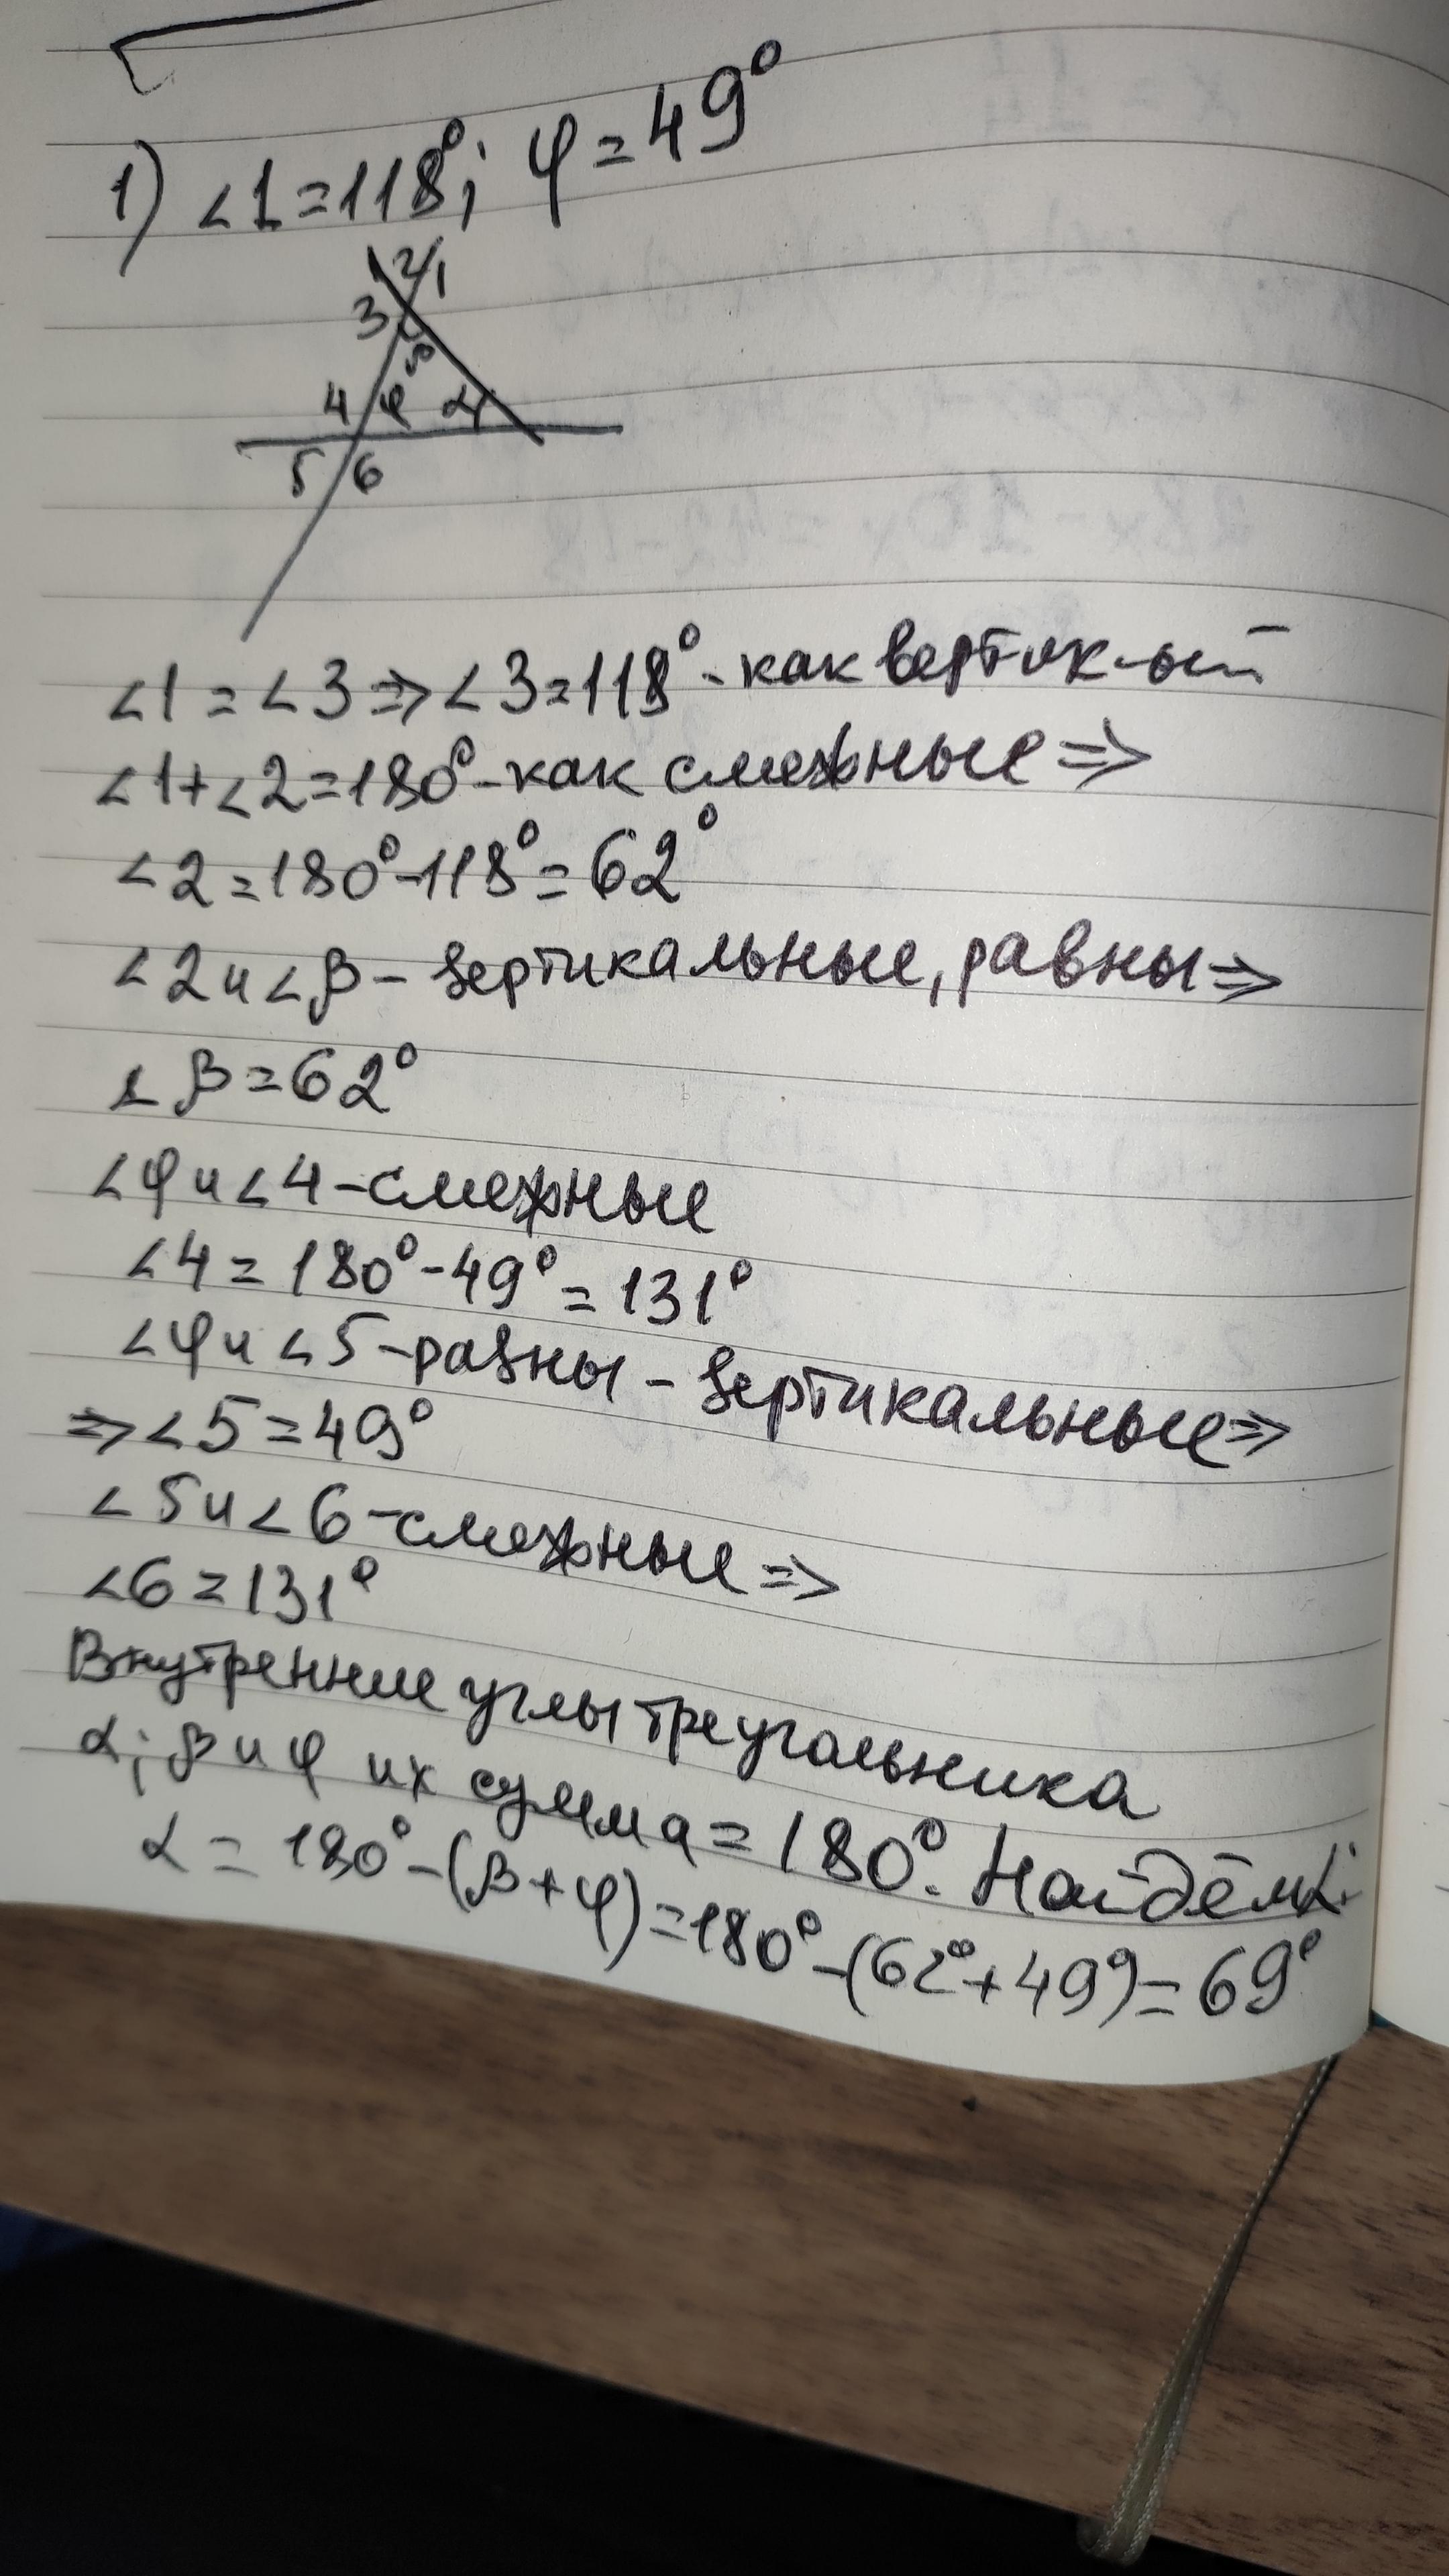 1) ∠1=118°; φ=49°
2 1
3
β
4 φ α
5 6
∠1=∠3⇒∠3=118°-как вертик-ый
∠1+∠2=180°-как смежные⇒
∠2=180°-118°=62°
∠2 и ∠β - вертикальные, равны⇒
∠β=62°
∠φ и ∠4-смежные
∠4=180°-49°=131°
∠φ и ∠5-равны-вертикальные⇒
⇒∠5=49°
∠5 и ∠6-смежные⇒
∠6=131°
Внутренние углы треугольника
α; β и φ их сумма=180°. Найдём α:
α=180°-(β+φ)=180°-(62°+49°)=69°